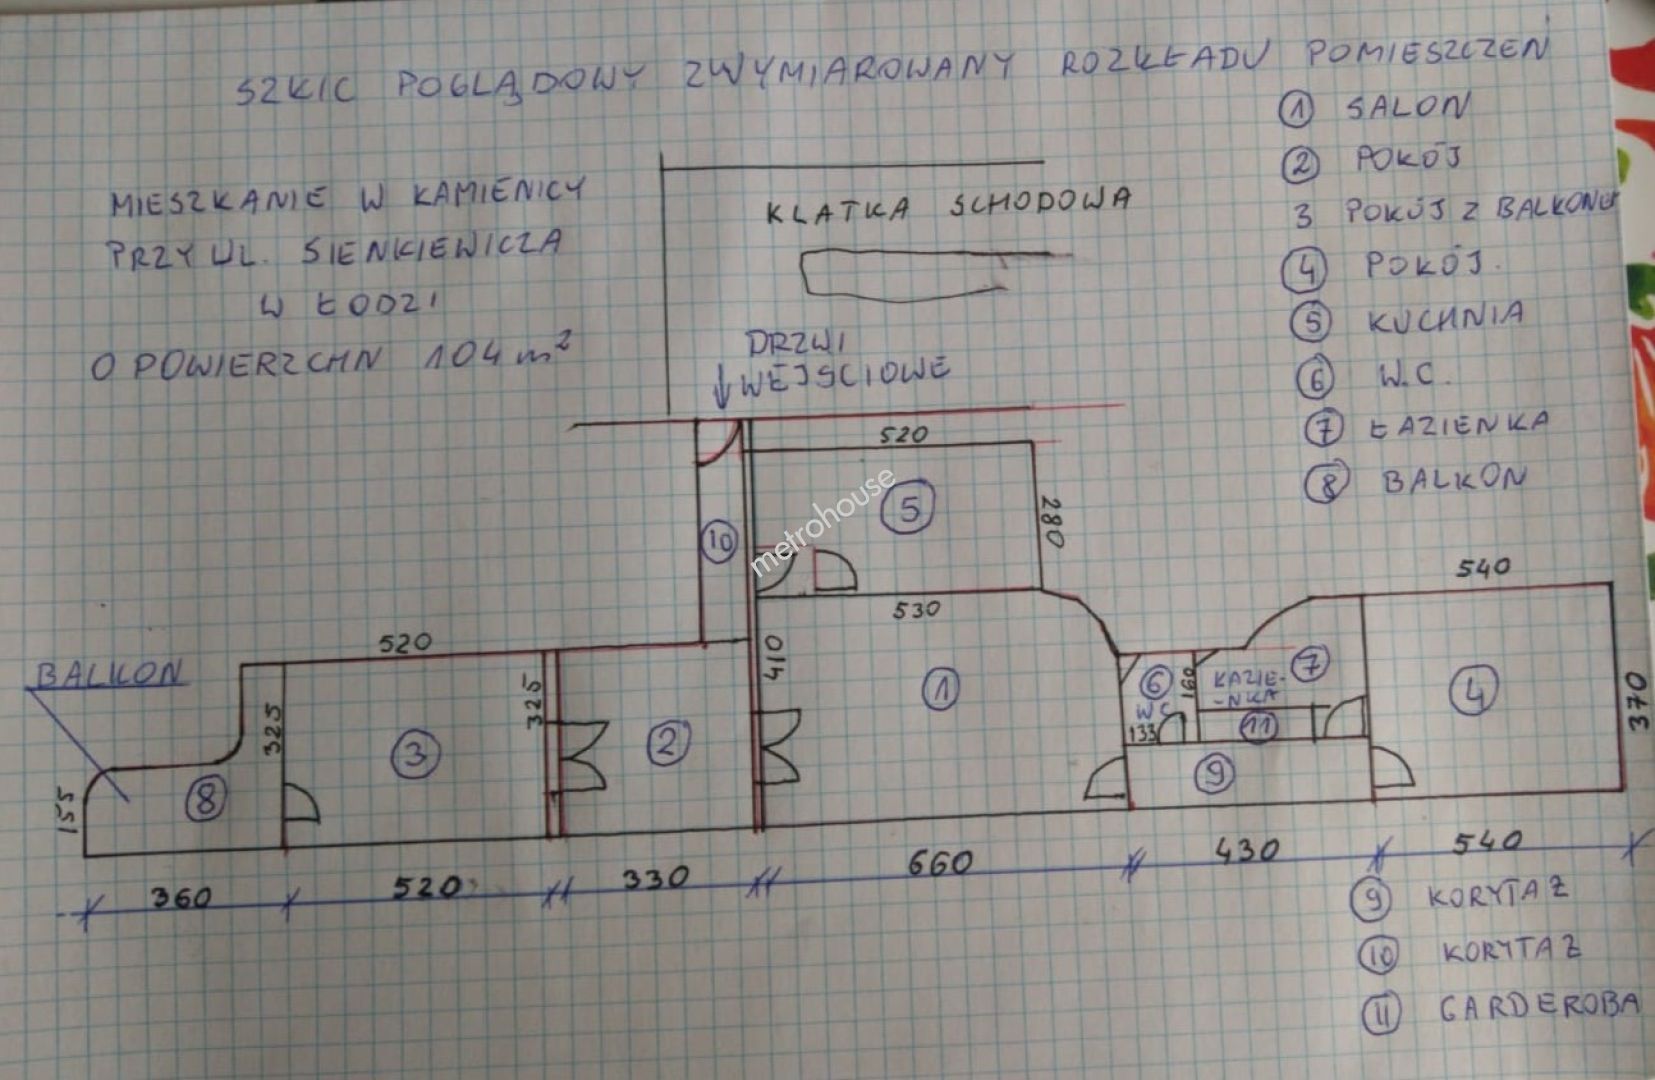 SZKIC POGLĄDOWY ZWYMIAROWANY ROZKŁADU POMIESZCZEŃ
1 SALON
2 POKÓJ
3 POKÓJ Z BALKONEM
4 POKÓJ.
5 KUCHNIA
6 W.C.
7 ŁAZIENKA
8 BALKON
MIESZKANIE W KAMIENICY
PRZY UL. SIENKIEWICZA
W ŁODZI
O POWIERZCHN 104 m²
KLATKA SCHODOWA
DRZWI
↓ WEJŚCIOWE
520
5
280
10
metrohouse
530
540
520
BALKON
325
325
410
1
6
WC
160
133
ŁAZIE-
-NKA
7
11
4
370
3
2
9
8
155
360
520
330
660
430
540
9 KORYTAŻ
10 KORYTAŻ
11 GARDEROBA